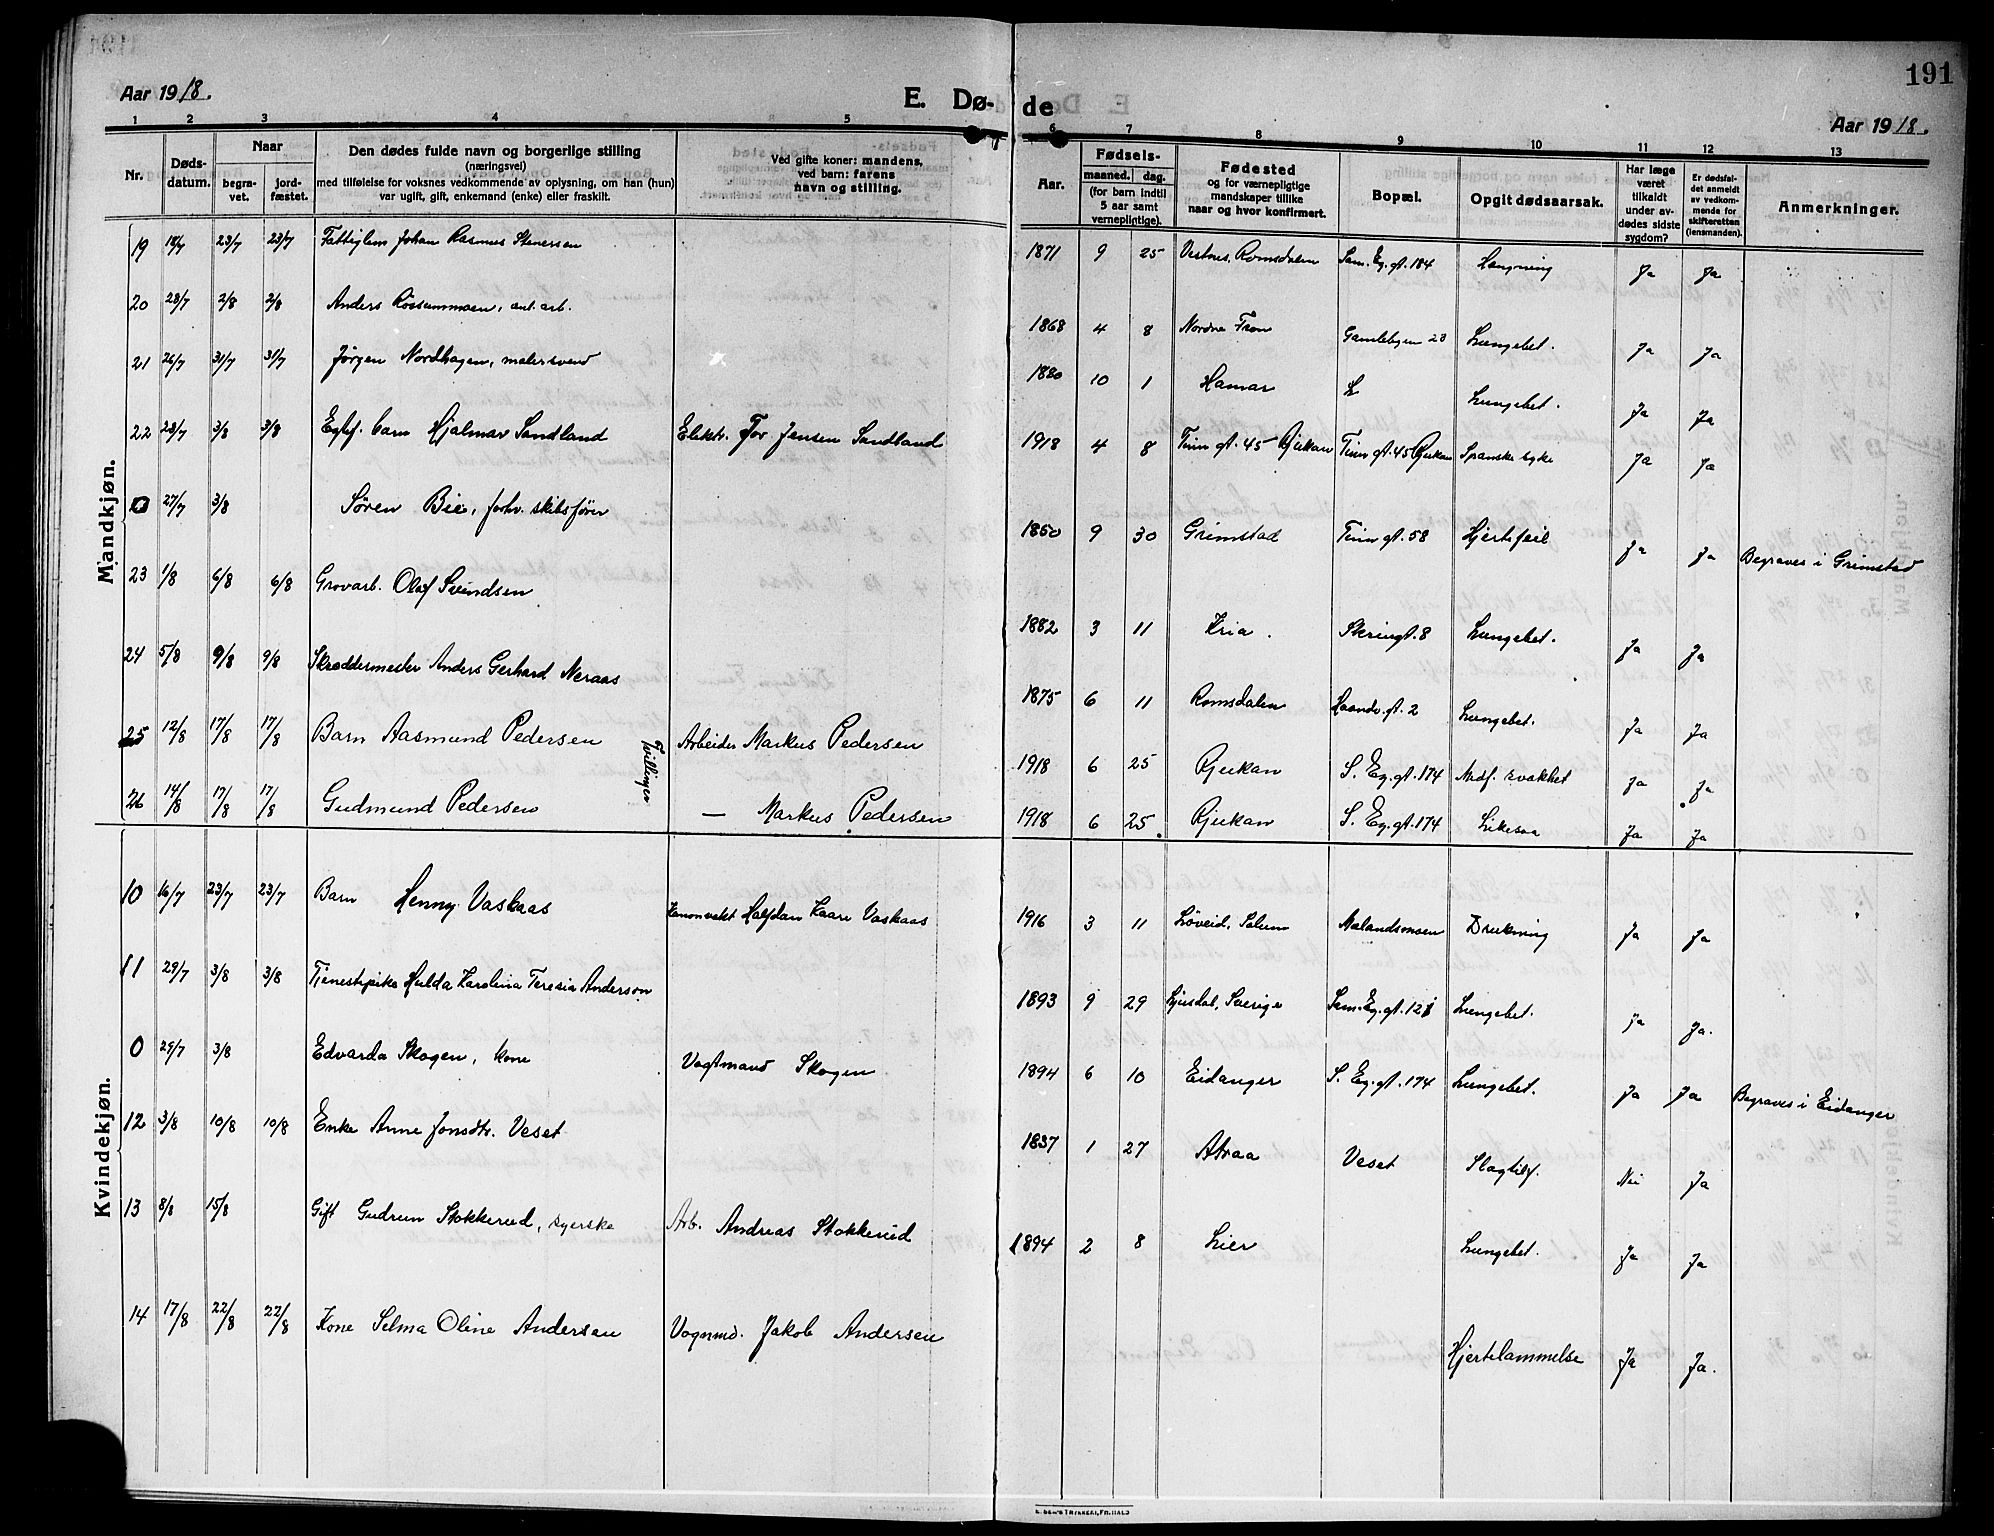 191
Aar 1918.
E. Dø-de
Aar 1918.
1 2 3 4 5 6 7 8 9 10 11 12 13
Nr.
Døds-datum.
Naar
begra-vet.
jord-fæstet.
Den dødes fulde navn og borgerlige stilling
(næringsvei)
med tilføielse for voksnes vedkommende av oplysning, om han (hun)
var ugift, gift, enkemand (enke) eller fraskilt.
Ved gifte koner: mandens,
ved barn: farens
navn og stilling.
Aar.
Fødsels-
maaned. dag.
(for barn indtil
5 aar samt
vernepligtige).
Fødested
og for værnepligtige
mandskaper tillike
naar og hvor konfirmert.
Bopæl.
Opgit dødsaarsak.
Har læge
været
tilkaldt
under av-
dødes sidste
sygdom?
Er dødsfal-
det anmeldt
av vedkom-
mende for
skifteretten
(lensmanden).
Anmerkninger.
Mandkjøn.
19 18/7 23/7 23/7 Fattiglem Johan Rasmus Stenersen 1871 9 25 Vestnes, Romsdalen Sam. Eg. gt. 184 Hængning Ja Ja
20 28/7 2/8 2/8 Anders Røssummoen, anl. arb. 1868 4 8 Nordre Fron Gamlebyen 23 Lungebet. Ja Ja
21 26/7 31/7 31/7 Jørgen Nordhagen, malersvend 1880 10 1 Hamar Lungebet. Ja Ja
22 28/7 3/8 3/8 Egtef. barn Hjalmar Sandland Elektr. Tor Jensen Sandland 1918 4 8 Tinn gt. 45 Rjukan Tinn gt. 45 Rjukan Spanske syke Ja Ja
0 27/7 3/8 Søren Bie, forhv. skibsfører 1850 9 30 Grimstad Tinn gt. 58 Hjertefeil Ja Ja Begraves i Grimstad
23 1/8 6/8 6/8 Grovarb. Olaf Svendsen 1882 3 11 Kria. Skringt. 8 Lungebet. Ja Ja
24 5/8 9/8 9/8 Skræddermester Anders Gerhard Neraas 1875 6 11 Romsdalen Haandv. gt. 2 Lungebet. Ja Ja
25 12/8 17/8 17/8 Barn Aasmund Pedersen Tvillinger Arbeider Markus Pedersen 1918 6 25 Rjukan S. Eg. gt. 174 Medf. svakhet Ja Ja
26 14/8 17/8 17/8 Gudmund Pedersen — Markus Pedersen 1918 6 25 Rjukan S. Eg. gt. 174 Likesaa Ja Ja
Kvindekjøn.
10 16/7 23/7 23/7 Barn Henny Vaskaas Kanonvakt Halfdan Kaare Vaskaas 1916 3 11 Løveid, Solum Mælandsmoen Drukning Ja Ja
11 29/7 3/8 3/8 Tjenestepike Hulda Karolina Teresia Anderson 1893 9 29 Ljusdal, Sverige Sam. Eg. gt. 121 Lungebet. Ja Ja.
0 29/7 3/8 Edvarda Skogen, kone Vagtmand Skogen 1894 6 10 Eidanger S. Eg. gt. 174 Lungebet. Ja Ja Begraves i Eidanger
12 3/8 10/8 10/8 Enke Anne Jonsdtr. Veset 1837 1 27 Atraa Veset Slagtilf. Nei Ja
13 8/8 15/8 Gift Gudrun Stokkerud, syerske Arb. Andreas Stokkerud 1894 2 8 Lier Lungebet. Ja Ja
14 17/8 22/8 22/8 Kone Selma Oline Andersen Vognmd. Jakob Andersen Hjertelammelse Ja Ja.